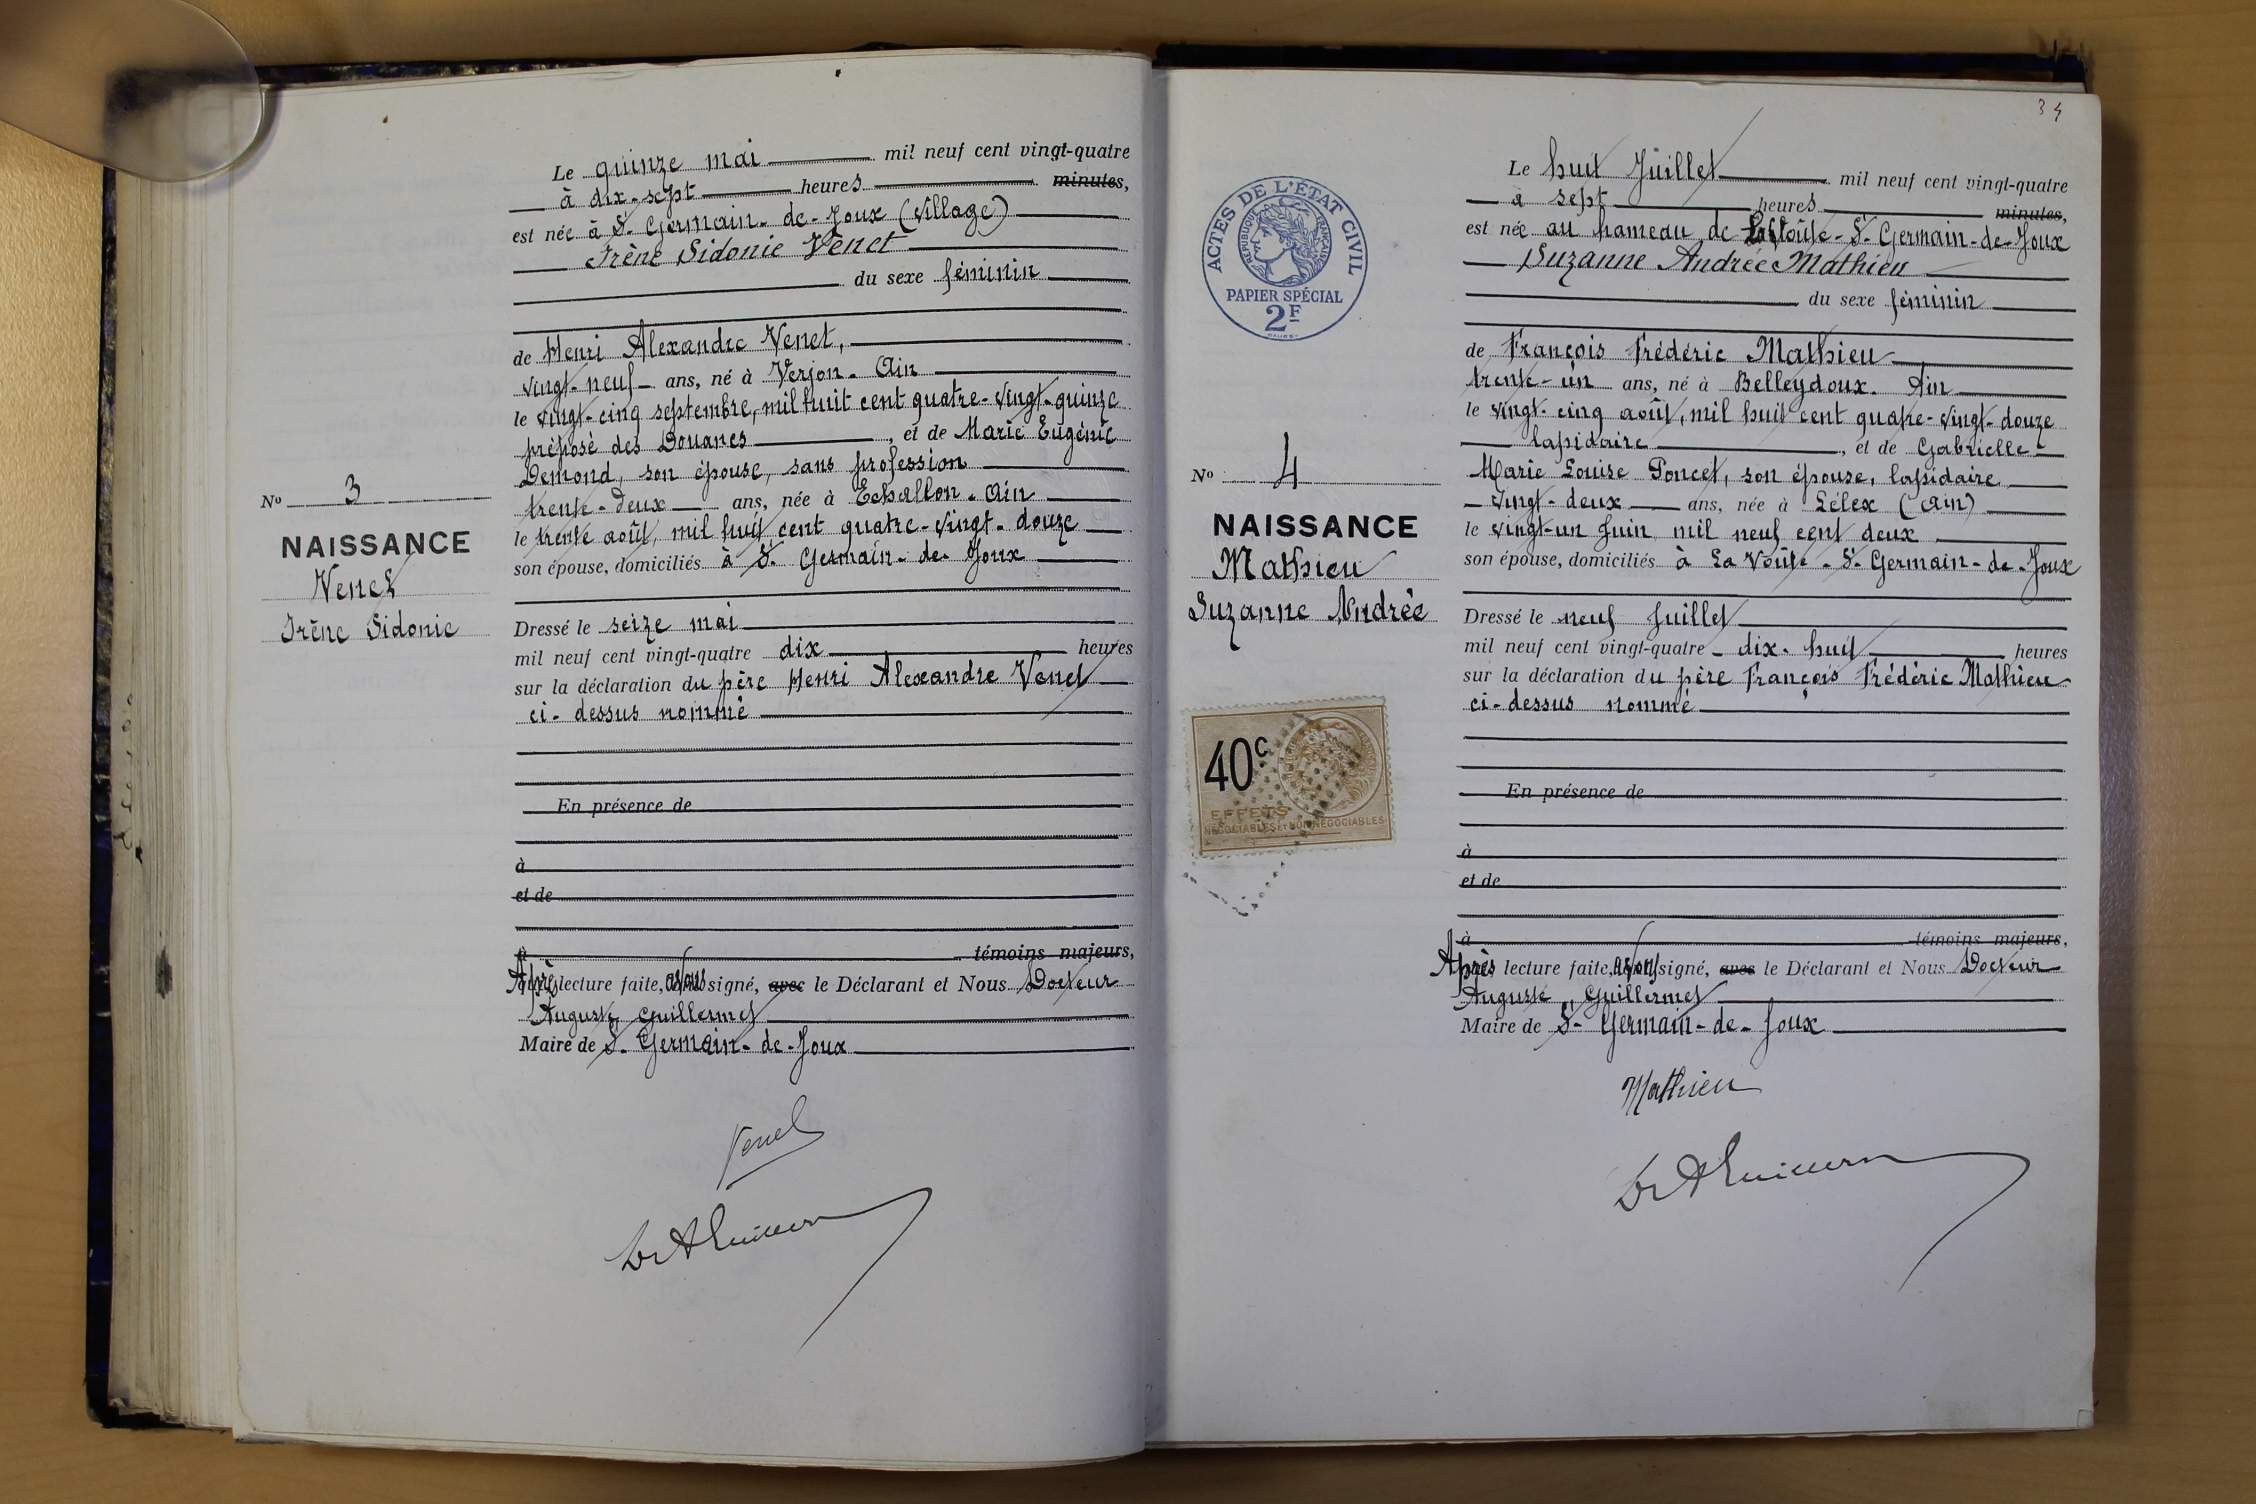 Le quinze mai mil neuf cent vingt-quatre
à dix-sept heures minutes,
est née à St Germain-de-Joux (village)
Irène Sidonie Venet
du sexe féminin
de Henri Alexandre Venet,
vingt-neuf ans, né à Verjon-Ain
le vingt-cinq septembre, mil huit cent quatre-vingt-quinze
préposé des Douanes, et de Marie Eugénie
Demond, son épouse, sans profession
trente-deux ans, née à Echallon-Ain
le trente août, mil huit cent quatre-vingt-douze
son épouse, domiciliés à St Germain-de-Joux
Dressé le seize mai
mil neuf cent vingt-quatre dix heures
sur la déclaration du père Henri Alexandre Venet
ci-dessus nommé
En présence de
à
et de
à témoins majeurs,
Après lecture faite, avons signé, avec le Déclarant et Nous Docteur
Auguste Guillermet
Maire de St Germain-de-Joux
No 3
NAISSANCE
Venet
Irène Sidonie
Venet
Dr A Guillerm
34
ACTES DE L'ÉTAT CIVIL
RÉPUBLIQUE FRANÇAISE
PAPIER SPÉCIAL
2F
Le huit Juillet mil neuf cent vingt-quatre
à sept heures minutes,
est née au hameau de La Voûte-St Germain-de-Joux
Suzanne Andrée Mathieu
du sexe féminin
de François Frédéric Mathieu
trente-un ans, né à Belleydoux. Ain
le vingt-cinq août, mil huit cent quatre-vingt-douze
lapidaire, et de Gabrielle-
Marie Louise Poncet, son épouse, lapidaire
vingt-deux ans, née à Lélex (Ain)
le vingt-un Juin mil neuf cent deux
son épouse, domiciliés à La Voûte-St Germain-de-Joux
Dressé le neuf Juillet
mil neuf cent vingt-quatre dix-huit heures
sur la déclaration du père François Frédéric Mathieu
ci-dessus nommé
En présence de
à
et de
à témoins majeurs,
Après lecture faite, avons signé, avec le Déclarant et Nous Docteur
Auguste Guillermet
Maire de St Germain-de-Joux
No 4
NAISSANCE
Mathieu
Suzanne Andrée
40c
EFFETS
NÉGOCIABLES ET NON NÉGOCIABLES
Mathieu
Dr A Guillerm